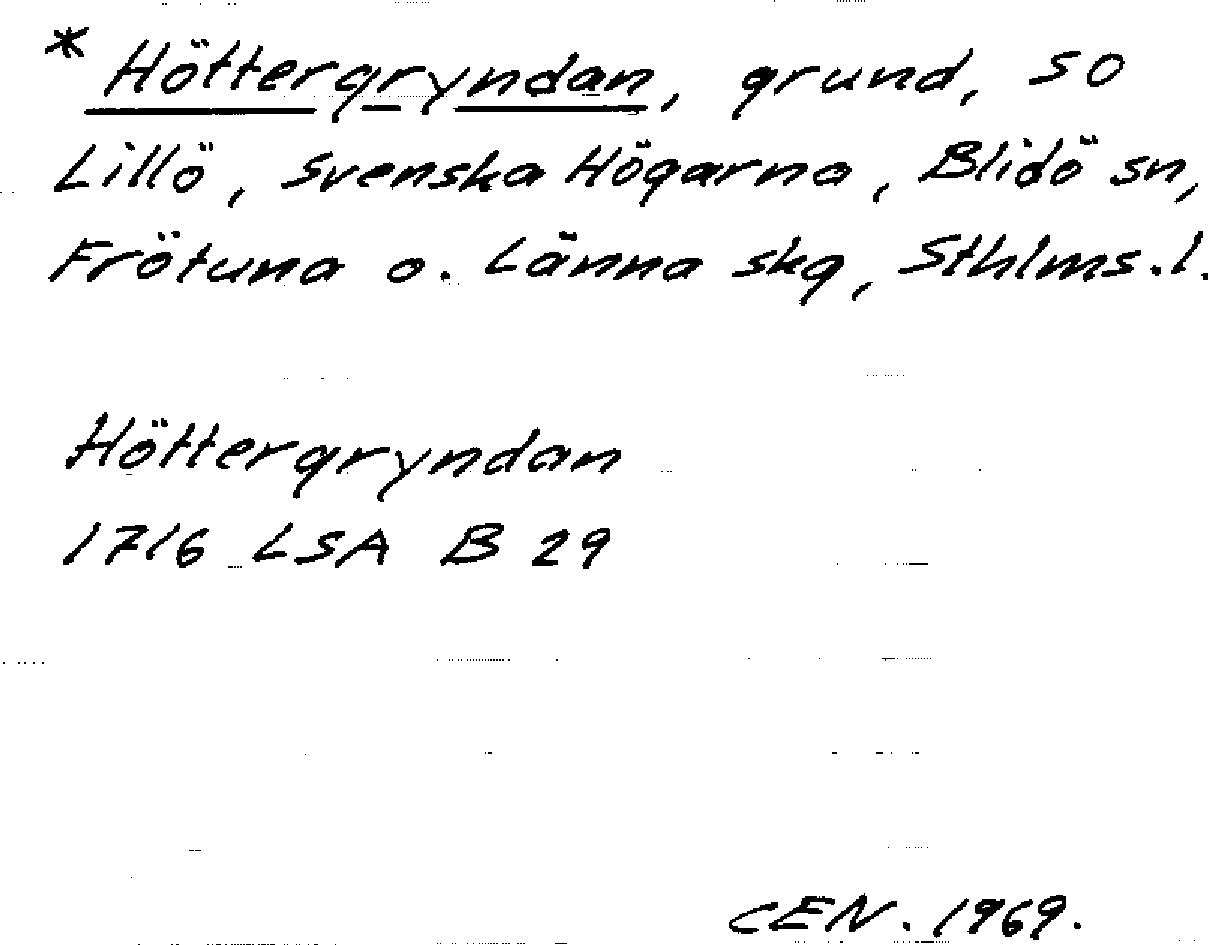 * Höttergryndan, grund, SO
Lillö, Svenska Högarna, Blidö sn,
Frötuna o. Länna skg, Sthlms.l.
Höttergryndan
1716 LSA B 29
CEN. 1969.